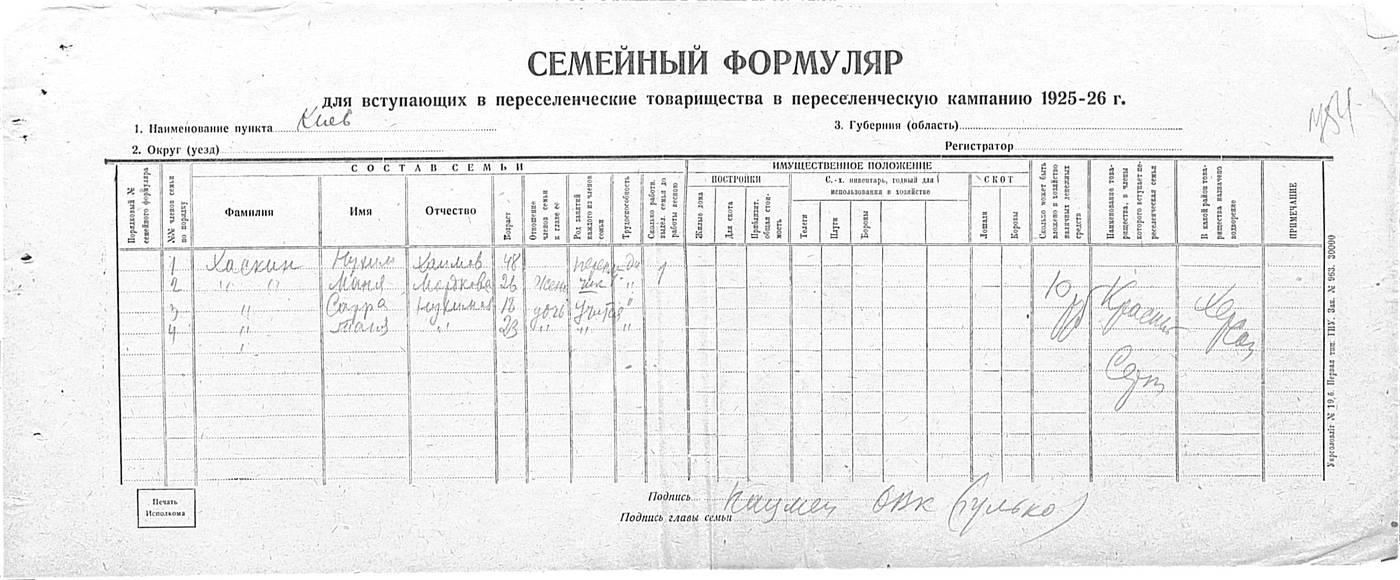 СЕМЕЙНЫЙ ФОРМУЛЯР
для вступающих в переселенческие товарищества в переселенческую кампанию 1925-26 г.
1. Наименование пункта Киев
3. Губерния (область)
2. Округ (уезд)
Регистратор
СОСТАВ СЕМЬИ
ИМУЩЕСТВЕННОЕ ПОЛОЖЕНИЕ
Порядковый № семейного формуляра
№№ членов семьи по порядку
Фамилия
Имя
Отчество
Возраст
Отношение членов семьи к главе ее
Род занятий каждого из членов семьи
Трудоспособность
Сколько работн. выдел. семья до работы весною
ПОСТРОЙКИ
Жилые дома
Для скота
Приблизит. общая стоимость
С.-х. инвентарь, годный для использования в хозяйстве
Телеги
Плуги
Бороны
СКОТ
Лошади
Коровы
Сколько может быть вложено в хозяйство наличных денежных средств
Наименование товарищества, в члены которого вступает переселенческая семья
В какой район товарищества назначено водворение
ПРИМЕЧАНИЕ
1 Хаскин Нухим Хаимов 48 да 1
2 " " Маня Мордкова 26 Жена "
3 " Сарра Нухимов 18 дочь "
4 " Маня " 23 " " "
"
Печать
Исполкома
Подпись ОВК (Гулько)
Подпись главы семьи
Укрголовліт № 19,6. Первая тип. ГПУ. Зак. № 963. 30000